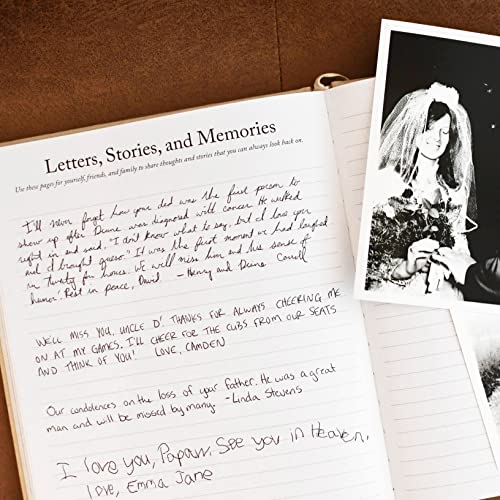 Letters, Stories, and Memories
Use these pages for yourself, friends, and family to share thoughts and stories that you can always look back on.
I'll never forget how your dad was the first person to
show up after Diane was diagnosed with cancer. He walked
right in and said, "I don't know what to say, but I love you
and I brought queso." It was the first moment we had laughed
in twenty four hours. We will miss him and his sense of
humor. Rest in peace, David. - Henry and Diane
WE'LL MISS YOU, UNCLE D! THANKS FOR ALWAYS CHEERING ME
ON AT MY GAMES. I'LL CHEER FOR THE CUBS FROM OUR SEATS
AND THINK OF YOU! LOVE, CAMDEN
Our condolences on the loss of your father. He was a great
man and will be missed by many. -Linda Stevens
I love you, Papaw. See you in Heaven,
love, Emma Jane